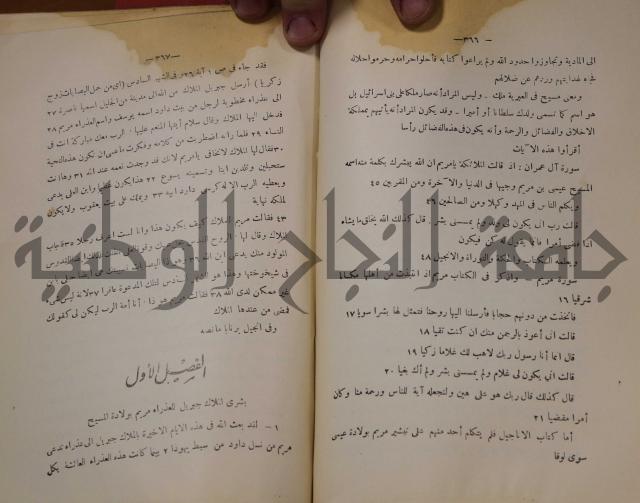 - ٣٦٦ -
الى المادية وتجاوزوا حدود الله ولم يراعوا كتابه فأحلوا حرامه وحرموا حلاله
فجاء لهدايتهم وردهم عن ضلالهم
ومعنى مسيح في العبرية ملك . وليس المراد أنه صار ملكا على بني اسرائيل بل
هو اسم كما نسمي ولدك سلطانا أو أميرا . وقد يكون المراد أنه يأتيهم بمملكة
الاخلاق والفضائل والرحمة وأنه يكون في هذه الفضائل رأسا
اقرأوا هذه الآيات
سورة آل عمران : اذ قالت الملائكة يامريم ان الله يبشرك بكلمة منه اسمه
المسيح عيسى بن مريم وجيها في الدنيا والآخرة ومن المقربين ٤٥
ويكلم الناس في المهد وكهلا ومن الصالحين ٤٦
قالت رب انى يكون لي ولد ولم يمسسني بشر . قال كذلك الله يخلق ما يشاء
اذا قضى أمرا فانما يقول له كن فيكون
ويعلمه الكتاب والحكمة والتوراة والانجيل ٤٨
سورة مريم : واذكر في الكتاب مريم اذ انتبذت من أهلها مكانا
شرقيا ١٦
فاتخذت من دونهم حجابا فأرسلنا اليها روحنا فتمثل لها بشرا سويا ١٧
قالت انى أعوذ بالرحمن منك ان كنت تقيا ١٨
قال انما أنا رسول ربك لاهب لك غلاما زكيا ١٩
قالت انى يكون لي غلام ولم يمسسني بشر ولم أك بغيا ٢٠
قال كذلك قال ربك هو علي هين ولنجعله آية للناس ورحمة منا وكان
أمرا مقضيا ٢١
أما كتاب الاناجيل فلم يتكلم أحد منهم على تبشير مريم بولادة عيسى
سوى لوقا
- ٣٦٧ -
فقد جاء في ص ١ آية ٢٦ وفي الشهر السادس (أي من حمل اليصابات زوج
زكريا) أرسل جبريل الملاك من الله الى مدينة من الجليل اسمها ناصرة ٢٧
الى عذراء مخطوبة لرجل من بيت داود اسمه يوسف واسم العذراء مريم ٢٨
فدخل اليها الملاك وقال سلام أيتها المنعم عليها . الرب معك مباركة أنت في
النساء ٢٩ فلما رأته اضطربت من كلامه وفكرت ما عسى ان تكون هذه التحية
٣٠ فقال لها الملاك لاتخافي يامريم لانك قد وجدت نعمة عند الله ٣١ وها أنت
ستحبلين وتلدين ابنا وتسمينه يسوع ٣٢ هذا يكون عظيما وابن العلي يدعى
ويعطيه الرب الاله كرسي داود أبيه ٣٣ ويملك على بيت يعقوب ولا يكون
لملكه نهاية
٣٤ فقالت مريم للملاك كيف يكون هذا وأنا لست أعرف رجلا ٣٥ فأجاب
الملاك وقال لها . الروح القدس
المولود منك يدعى ابن الله ٣٦
في شيخوختها وهذا هو الشهر السادس لتلك المدعوة عاقرا ٣٧ لانه ليس شيء
غير ممكن لدى الله ٣٨ فقالت مريم هوذا . أنا أمة الرب ليكن لي كقولك
فمضى من عندها الملاك
وفي انجيل برنابا ما نصه
الفصل الأول
بشرى الملاك جبريل للعذراء مريم بولادة المسيح
١ - لقد بعث الله في هذه الايام الاخيرة بالملاك جبريل الى عذراء تدعى
مريم من نسل داود من سبط يهوذا ٢ بينما كانت هذه العذراء العائشة بكل
جامعة النجاح الوطنية